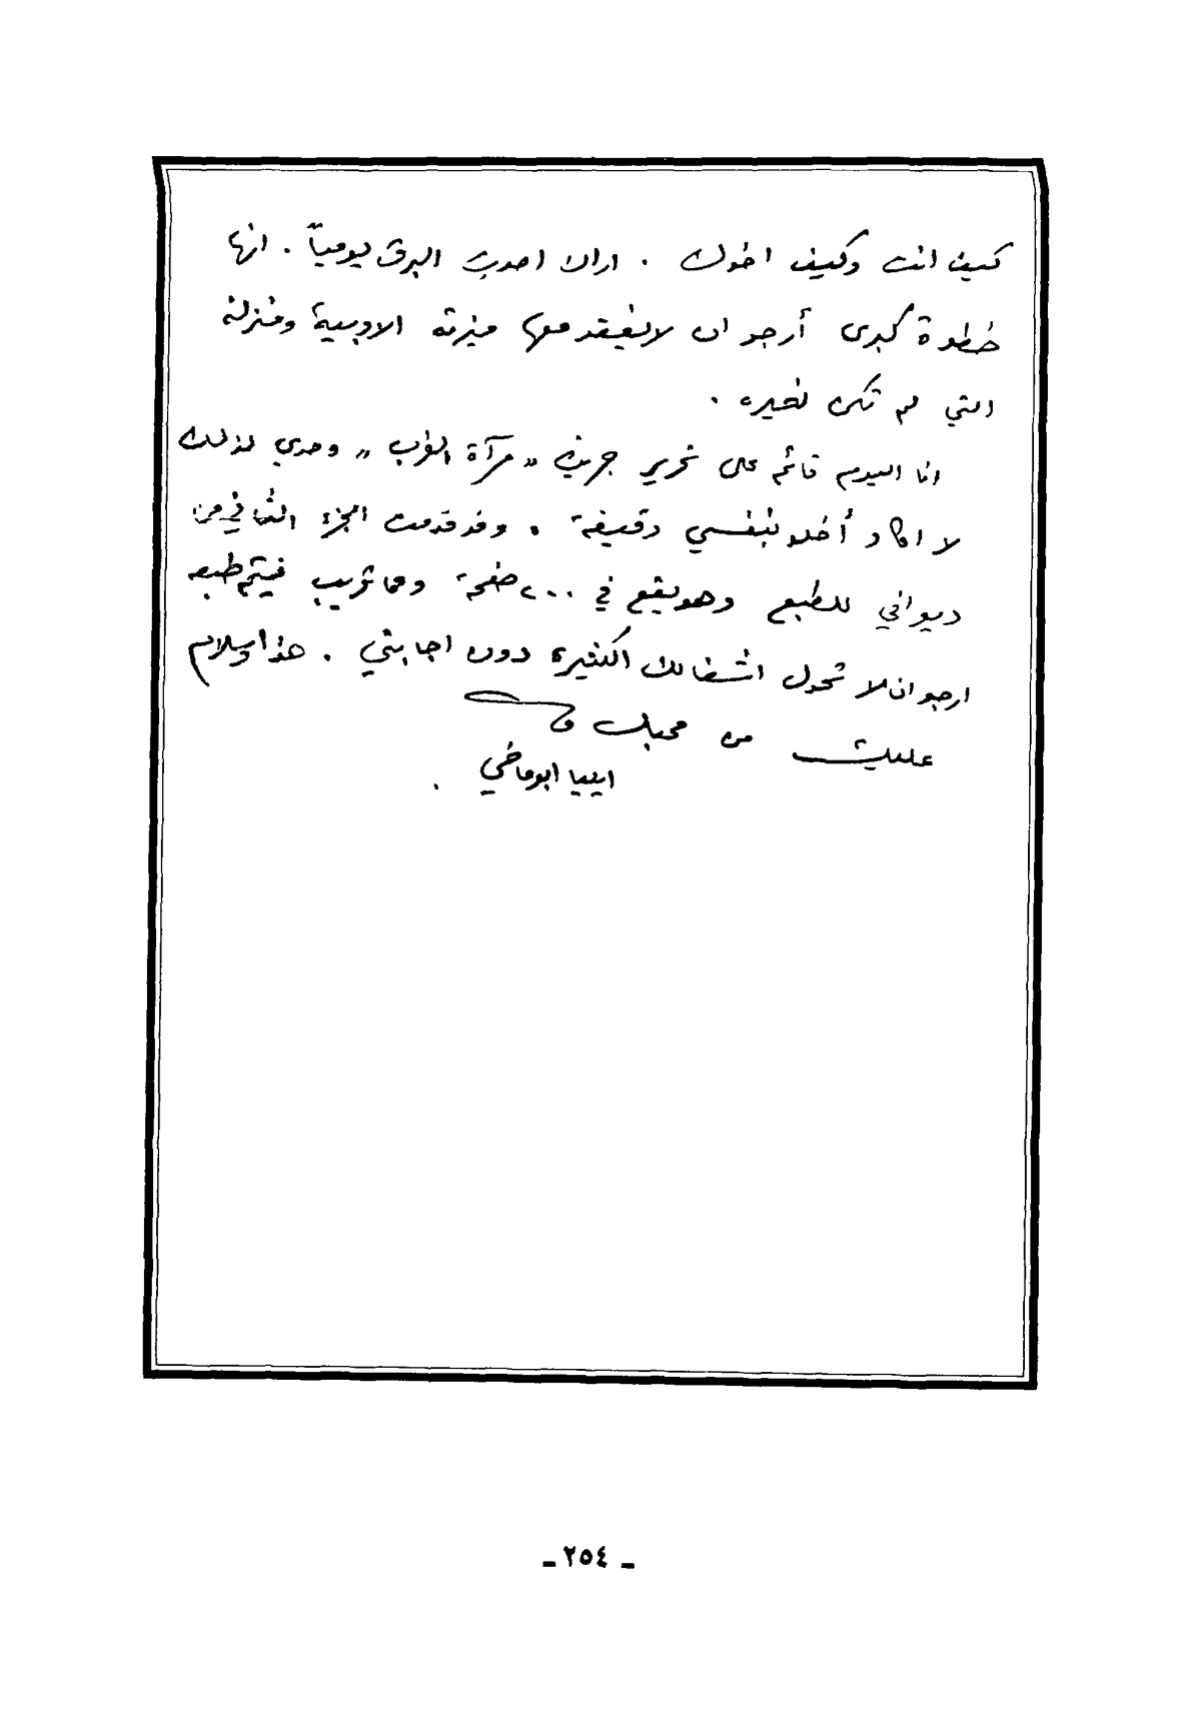 كيف انت وكيف اخوك . اراك اصدرت البرق يومياً . انها
خطوة كبرى أرجو ان لا يفقد معها ميزته الادبية ومنزلته
التي لم تكن لغيره .
انا اليوم قائم على تحرير جريدة « مرآة الغرب » وحدي لذلك
لا اكاد أخلو بنفسي دقيقة . وقد قدمت الجزء الثاني من
ديواني للطبع وهو يقع في ٢٠٠ صفحة وعما قريب فيتم طبعه
ارجو ان لا تحول اشغالك الكثيرة دون اجابتي . هذا وسلام
عليك من محبك
ايليا ابو ماضي .
ـ ٢٥٤ ـ